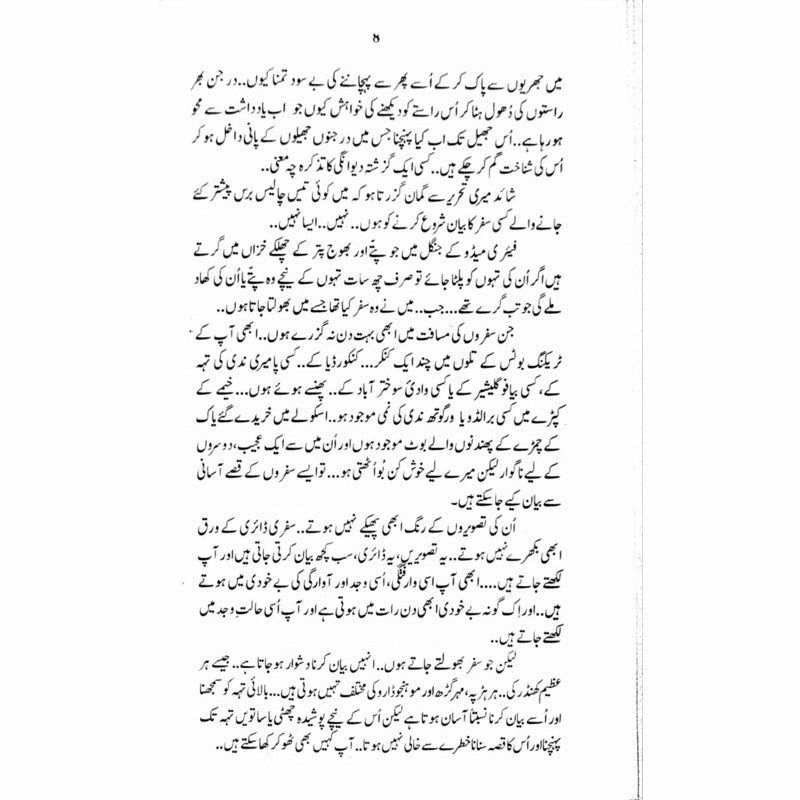 ۸
میں جھریوں سے پاک کر کے اُسے پھر سے پہچاننے کی بے سود تمنا کیوں..درجن بھر
راستوں کی دُھول ہٹا کر اُس راستے کو دیکھنے کی خواہش کیوں جو اب یادداشت سے محو
ہو رہا ہے..اُس جھیل تک اب کیا پہنچنا جس میں درجنوں جھیلوں کے پانی داخل ہو کر
اُس کی شناخت گم کر چکے ہیں..کسی ایک گزشتہ دیوانگی کا تذکرہ چہ معنی..
شائد میری تحریر سے گمان گزرتا ہو کہ میں کوئی تیس چالیس برس پیشتر کئے
جانے والے کسی سفر کا بیان شروع کرنے کو ہوں..نہیں..ایسا نہیں..
فیئری میڈو کے جنگل میں جو پتّے اور بھوج پتر کے چھلکے خزاں میں گرتے
ہیں اگر اُن کی تہوں کو پلٹا جائے تو صرف چھ سات تہوں کے نیچے وہ پتّے یا اُن کی کھاد
ملے گی جو تب گرے تھے...جب..میں نے وہ سفر کیا تھا جسے میں بھولتا جاتا ہوں..
جن سفروں کی مسافت میں ابھی بہت دن نہ گزرے ہوں..ابھی آپ کے
ٹریکنگ بوٹس کے تلوں میں چند ایک کنکر...کنکورڈیا کے..کسی پامیری ندی کی تہہ
کے، کسی بیافو گلیشیر کے یا کسی وادیٔ سوختر آباد کے..پھنسے ہوئے ہوں...خیمے کے
کپڑے میں کسی برالڈو یا ورگوتھ ندی کی نمی موجود ہو..اسکولے میں خریدے گئے یاک
کے چمڑے کے پھندنوں والے بوٹ موجود ہوں اور اُن میں سے ایک عجیب، دوسروں
کے لیے ناگوار لیکن میرے لیے خوش کن بُو اُٹھتی ہو...تو ایسے سفروں کے قصے آسانی
سے بیان کیے جا سکتے ہیں۔
اُن کی تصویروں کے رنگ ابھی پھیکے نہیں ہوتے..سفری ڈائری کے ورق
ابھی بکھرے نہیں ہوتے..یہ تصویریں، یہ ڈائری، سب کچھ بیان کرتی جاتی ہیں اور آپ
لکھتے جاتے ہیں....ابھی آپ اسی وارفتگی، اُسی وجد اور آوارگی کی بے خودی میں ہوتے
ہیں..اور اِک گونہ بے خودی ابھی دن رات میں ہوتی ہے اور آپ اُسی حالتِ وجد میں
لکھتے جاتے ہیں..
لیکن جو سفر بھولتے جاتے ہوں..انہیں بیان کرنا دشوار ہو جاتا ہے..جیسے ہر
عظیم کھنڈر کی..ہر ہڑپہ، مہر گڑھ اور موہنجوڈارو کی مختلف تہیں ہوتی ہیں...بالائی تہہ کو سمجھنا
اور اُسے بیان کرنا نسبتاً آسان ہوتا ہے لیکن اُس کے نیچے پوشیدہ چھٹی یا ساتویں تہہ تک
پہنچنا اور اُس کا قصہ سنانا خطرے سے خالی نہیں ہوتا..آپ کہیں بھی ٹھوکر کھا سکتے ہیں..